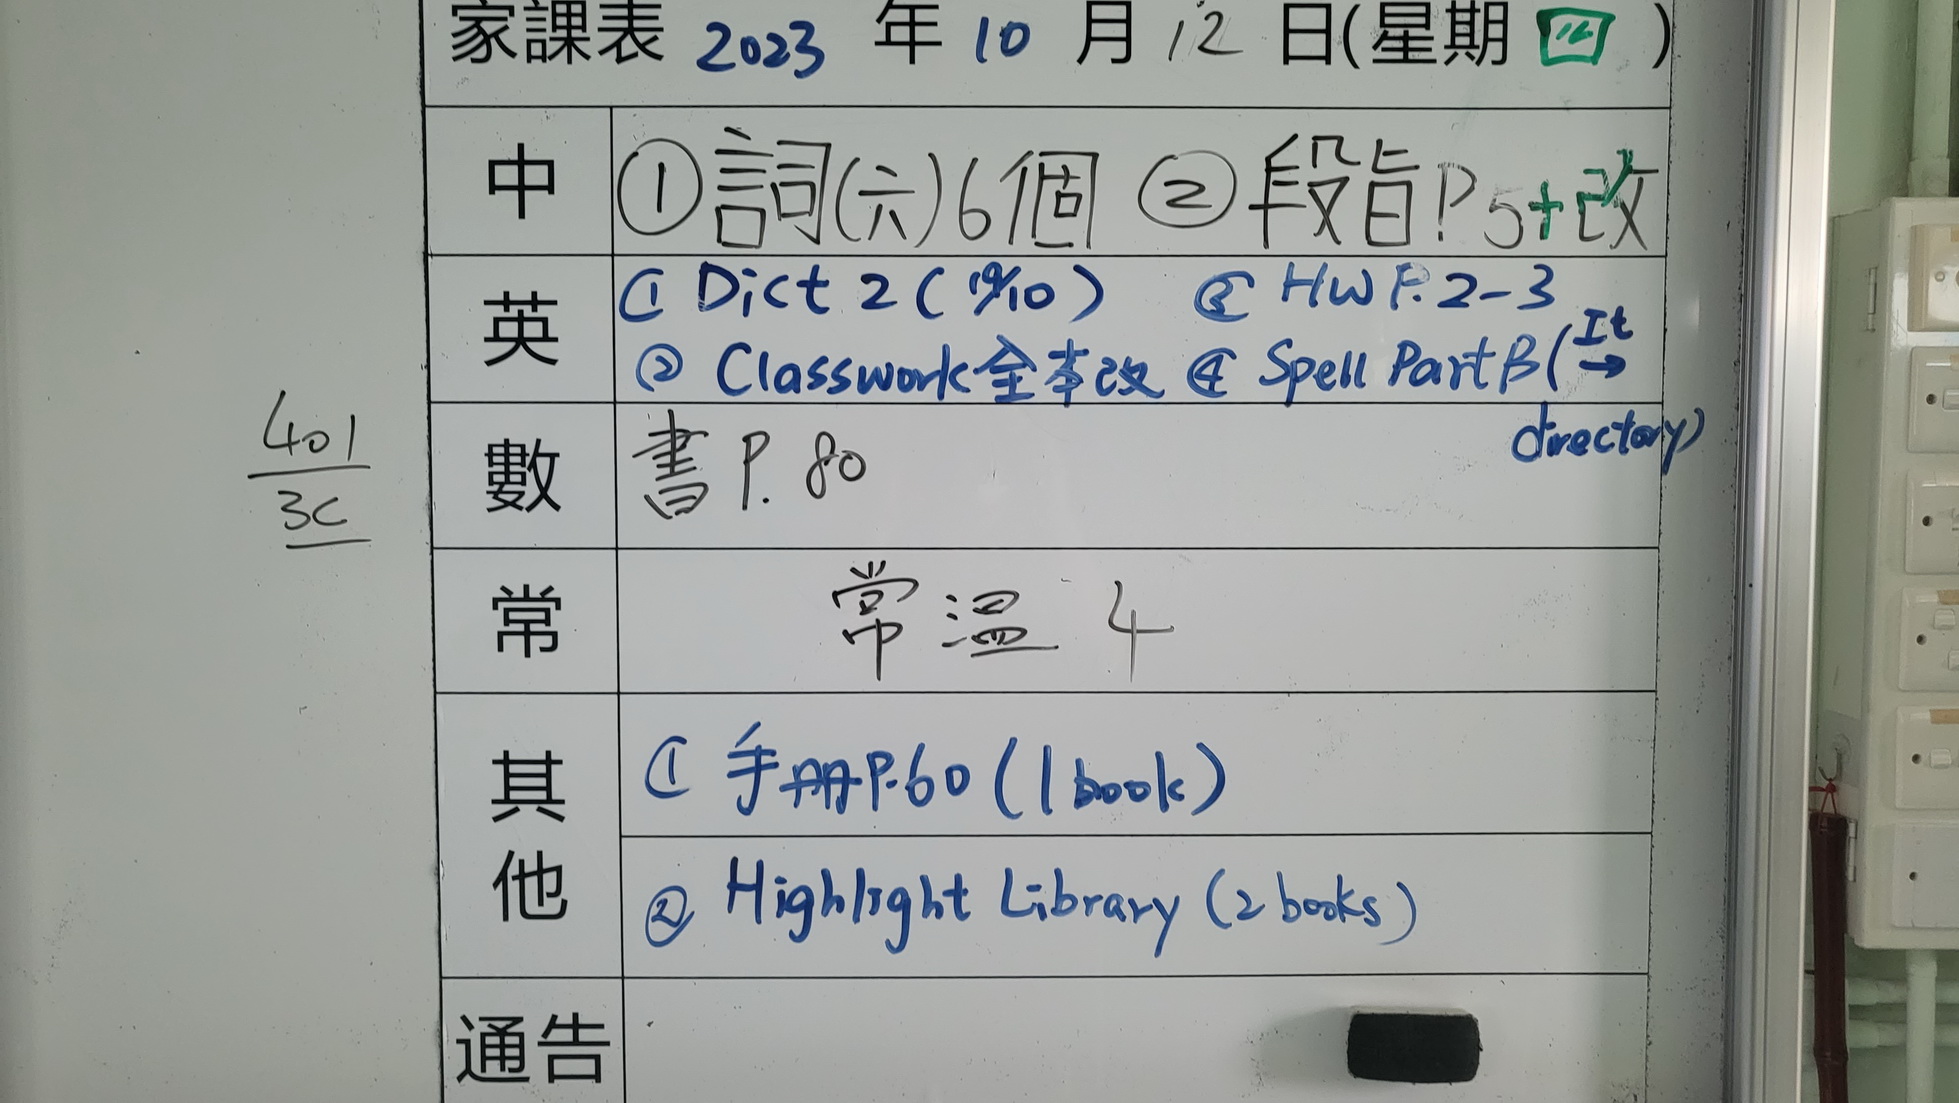 家課表 2023 年 10 月 12 日(星期 四 )
中 ①詞(六)6個 ②段旨P5+改
英 ① Dict 2 (19/10) ③ HW P.2-3
② Classwork全本改 ④ Spell Part B (It →
directory)
數 書 P. 80
401
3C
常 常温 4
其他 ① 手冊P.60 (1 book)
② Highlight Library (2 books)
通告